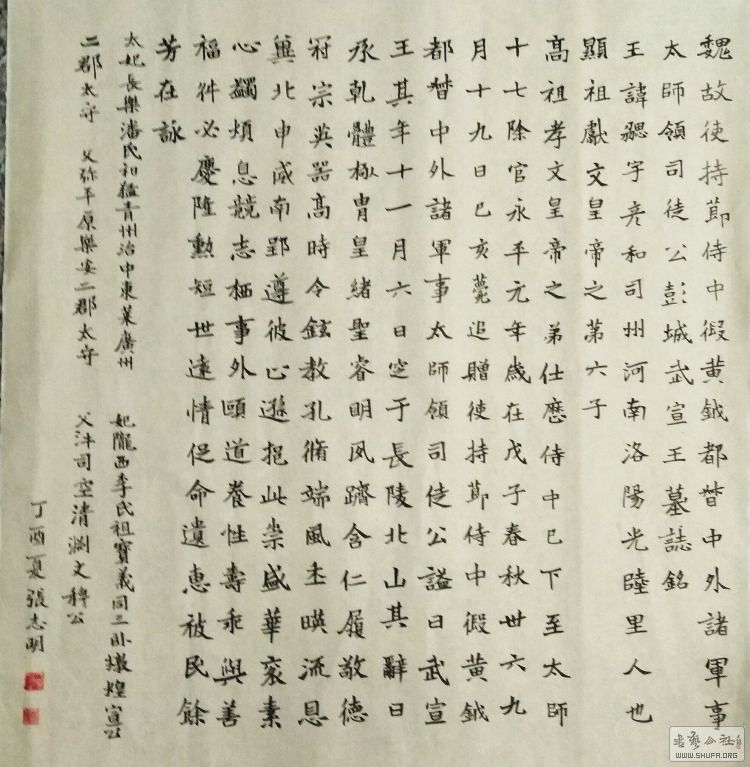 魏故使持節侍中假黃鉞都督中外諸軍事
太師領司徒公彭城武宣王墓誌銘
王諱勰字彥和司州河南洛陽光睦里人也
顯祖獻文皇帝之第六子
高祖孝文皇帝之弟仕歷侍中已下至太師
十七除官永平元年歲在戊子春秋卅六九
月十九日己亥薨追贈使持節侍中假黃鉞
都督中外諸軍事太師領司徒公謚曰武宣
王其年十一月六日窆于長陵北山其辭曰
承乾體極胄皇緒聖睿明夙躋含仁履敬德
冠宗英器高時令鉉教孔脩端風丕暎流恩
冀北申威南郢遵彼止遜挹此崇盛華袞素
心蠲煩息競志栖事外頤道養性壽乖與善
福舛必慶隆勳短世遠情促命遺惠被民餘
芳在詠
太妃長樂潘氏和猛青州治中東萊廣州
二郡太守 父弥平原樂安二郡太守
妃隴西李氏祖寶義同三 燉煌宣公
父沖司空清淵文穆公
丁酉夏張志明
書藝公社
WWW.SHUFA.ORG